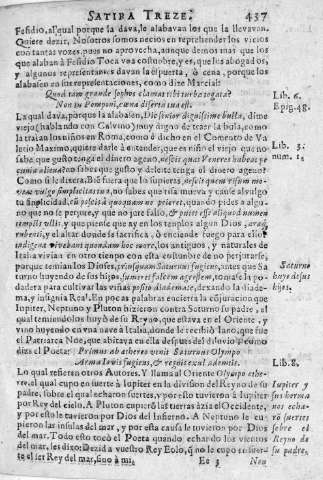 SATIRA TREZE. 437
Fesidio, al qual porque la dava, le alabavan los que la llevavan.
Quiere dezir, Nosotros somos necios en reprehender los vicios
con tantas vozes, pues no aprovecha, aunque demos mas que los
que alaban à Fesidio Toca vna costumbre, y es, que los abogados,
y algunos representantes davan la espuerta, ò cena, porque los
alabassen en sus representaciones, como dize Marcial:
Quod tam grande sophos clamat tibi turba togata?
Non tu Pomponi, cœna diserta tua est.
Lib. 6.
Epig. 48.
La qual dava, porque la alabassen, Dic senior dignissime bulla, dime
viejo (hablando con Calvino) muy digno de traer la bula, como
la traian los niños en Roma, como è dicho en el Comento de Va
lerio Maximo, quiere darle à entender, que es niño el viejo que no
sabe, que gusto tenga el dinero ageno, nescis quas Veneres habeat pe
cunia aliena? no sabes que gusto y deleite tenga el dinero ageno?
Lib. 3.
num. 1.
Como si le dixera, Biẽ fuera que lo supieras, nescis quem risum mo-
veat vulgo simplicitas tua, no sabes que risa mueva y cause al vulgo
tu simplicidad, cũ poscis à quoquam ne peieret, quando pides a algu-
no que no se perjure, y que no jure falso, & putet esse aliquod numen
templis
y que piense que ay en los templos algun Dios, aræq́;
rubenti, y el altar donde se sacrifica, ò enciende fuego para ello,
indigenæ vivebant quondam hoc more, los antiguos, y naturales de
Italia vivian en otro tiempo con esta costumbre de no perjurarse,
porque temian los Dioses, priusquam Saturnus fugiens, antes que Sa
turno huyendo de sus hijos, sumeret falcem agrestem, tomasse la po
dadera para cultivar las viñas posito diademate, dexando la diade-
ma, y insignia Real. En pocas palabras encierra la conjuracion que
Saturno
huye de sus
hijos.
Iupiter, Neptuno y Pluton hizieron contra Saturno su padre, al
qual temiendo los huyò de su Reyno, que estava en el Oriente, y
vino huyendo en vna nave à Italia, donde le recibiò Iano, que fue
el Patriarca Noe, que abitava en ella despues del diluvio P como
dize el Poeta: Primus ab æthereo venit Saturnus Olympo
Arma Iovis fugiens, & regnis exul ademptis.
Lib. 8.
Lo qual refieren otros Autores. Y llama al Oriente Olympo æthe-
reo, al qual cupo en suerte à Iupiter en la division del Reyno de su
padre, sobre el qual echaron suertes, y por esto tuvieron à Iupiter
por Rey del cielo. A Pluton cupierõ las tierras àzia el Occidente,
y por esto le tuvieron por Dios del Infierno. A Neptuno le cu-
pieron las insulas del mar, y por esta causa le tuvieron por Dios
del mar. Todo esto tocò el Poeta quando echando los vientos
del mar, les dixo: Dezid a vuestro Rey Eolo, q̃ no le cupo en suer-
te el ser Rey del mar, sino à mi.
Iupiter y
sus herma
nos echa-
rõ suertes
sobre el
Reyno de
su padre.
Ee 3 Non